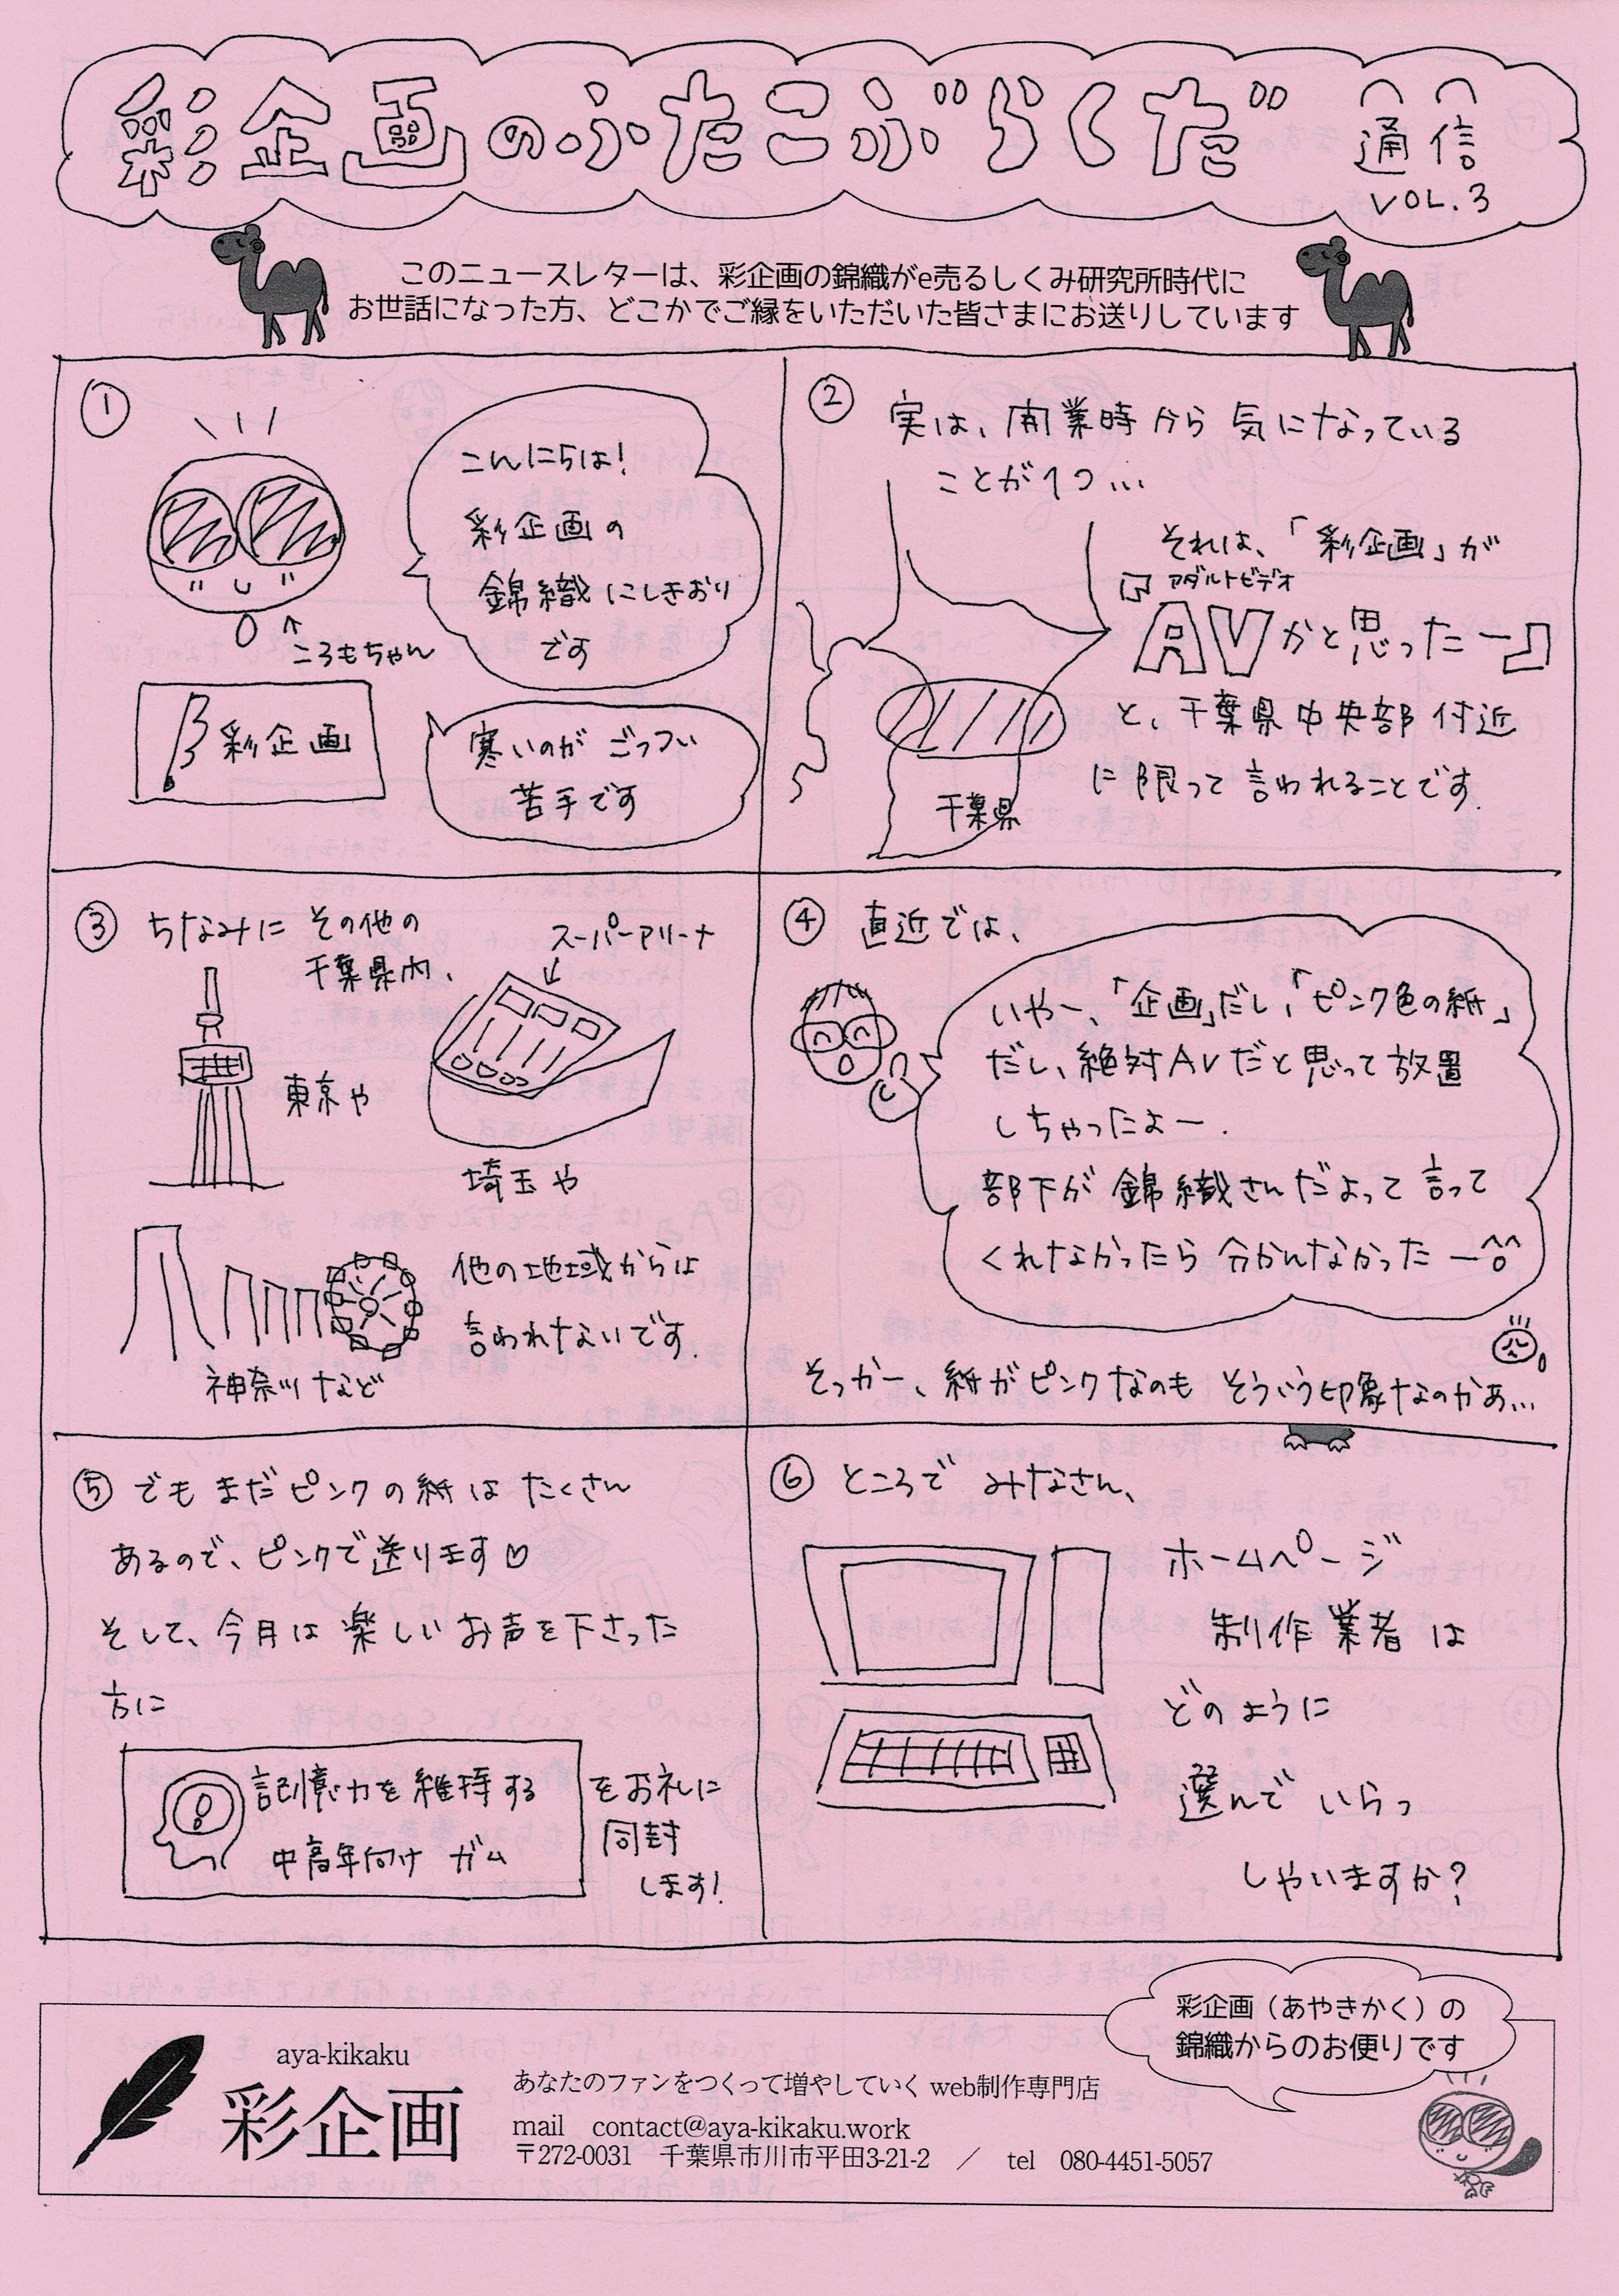 彩企画のふたこぶらくだ 通信
VOL.3
このニュースレターは、彩企画の錦織がe売るしくみ研究所時代に
お世話になった方、どこかでご縁をいただいた皆さまにお送りしています
①
こんにちは!
彩企画の
錦織 にしきおり
です
ころもちゃん
彩企画
寒いのが ごっつい
苦手です
② 実は、開業時から 気になっている
ことが1つ...
それは、「彩企画」が
アダルトビデオ
『AVかと思ったー』
と、千葉県中央部付近
に限って 言われることです.
千葉県
③ ちなみに その他の
千葉県内、
スーパーアリーナ
東京や
埼玉や
他の地域からは
言われないです.
神奈川など
④ 直近では、
いやー、「企画」だし、「ピンク色の紙」
だし、絶対AVだと思って放置
しちゃったよー.
部下が 錦織さんだよって 言って
くれなかったら 分かんなかったー^^
そっかー、紙がピンクなのも そういう印象なのかぁ...
⑤ でも まだピンクの紙は たくさん
あるので、ピンクで送ります♡
そして、今月は 楽しいお声を下さった
方に
記憶力を維持する
中高年向け ガム
をお礼に
同封
します!
⑥ ところで みなさん、
ホームページ
制作業者 は
どのように
選んで いらっ
しゃいますか?
彩企画（あやきかく）の
錦織からのお便りです
aya-kikaku
彩企画
あなたのファンをつくって増やしていく web制作専門店
mail contact@aya-kikaku.work
〒272-0031 千葉県市川市平田3-21-2 ／ tel 080-4451-5057